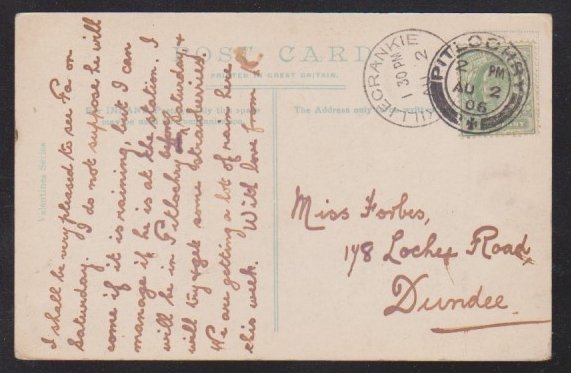 POST CARD
PRINTED IN GREAT BRITAIN.
The Address only to be
Valentines Series
KILLIECRANKIE
1 30 PM
AU 2
PITLOCHRY
2 PM
AU 2
06
I shall be very pleased to see Pa on
Saturday. I do not suppose he will
come if it is raining, but I can
manage if he is at the station. I
will be in Pitlochry before Saturday &
will try & get some strawberries.
We are getting a lot of rain here
this week. With love from
Miss Forbes,
178 Lochee Road,
Dundee.